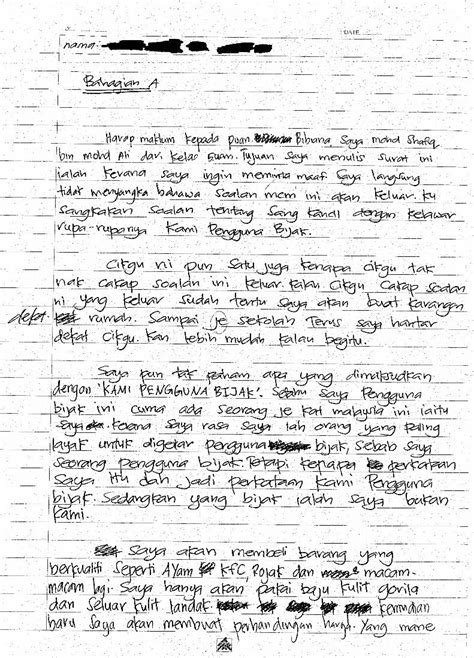 DATE
nama:
Bahagian A
Harap maklum kepada puan Bibiana Saya mohd Shafiq
bin mohd Ali dari Kelas 5uam. Tujuan Saya menulis surat ini
ialah kerana saya ingin meminta maaf Saya langsung
tidak menyangka bahawa soalan mcm ini akan keluar. Ku
sangkakan soalan tentang Sang kancil dengan kelawar
rupa-rupanya Kami Pengguna Bijak.
Cikgu ni pun Satu juga kenapa cikgu tak
nak cakap soalan ini keluar. Kalau Cikgu Cakap soalan
ni yang keluar sudah tentu saya akan buat karangan
dekat rumah. Sampai je sekolah Terus saya hantar
dekat Cikgu. Kan lebih mudah kalau begitu.
Saya pun tak paham apa yang dimaksudkan
dengan 'KAMI PENGGUNA BIJAK'. Saya Pengguna
bijak ini cuma ada seorang je kat malaysia ini iaitu
saya. Kerana Saya rasa Saya lah orang yang paling
layak untuk digelar pengguna bijak, sebab saya
seorang pengguna bijak. Tetapi kenapa perkataan
Saya itu dah jadi perkataan Kami Pengguna
bijak. Sedangkan yang bijak ialah saya bukan
Kami.
Saya akan membeli barang yang
berkualiti seperti AYam KFC, Rojak dan macam-
macam lagi. Saya hanya akan pakai baju kulit gorila
dan seluar kulit landak kemudian
baru Saya akan membuat perbandingan harga. Yang mane